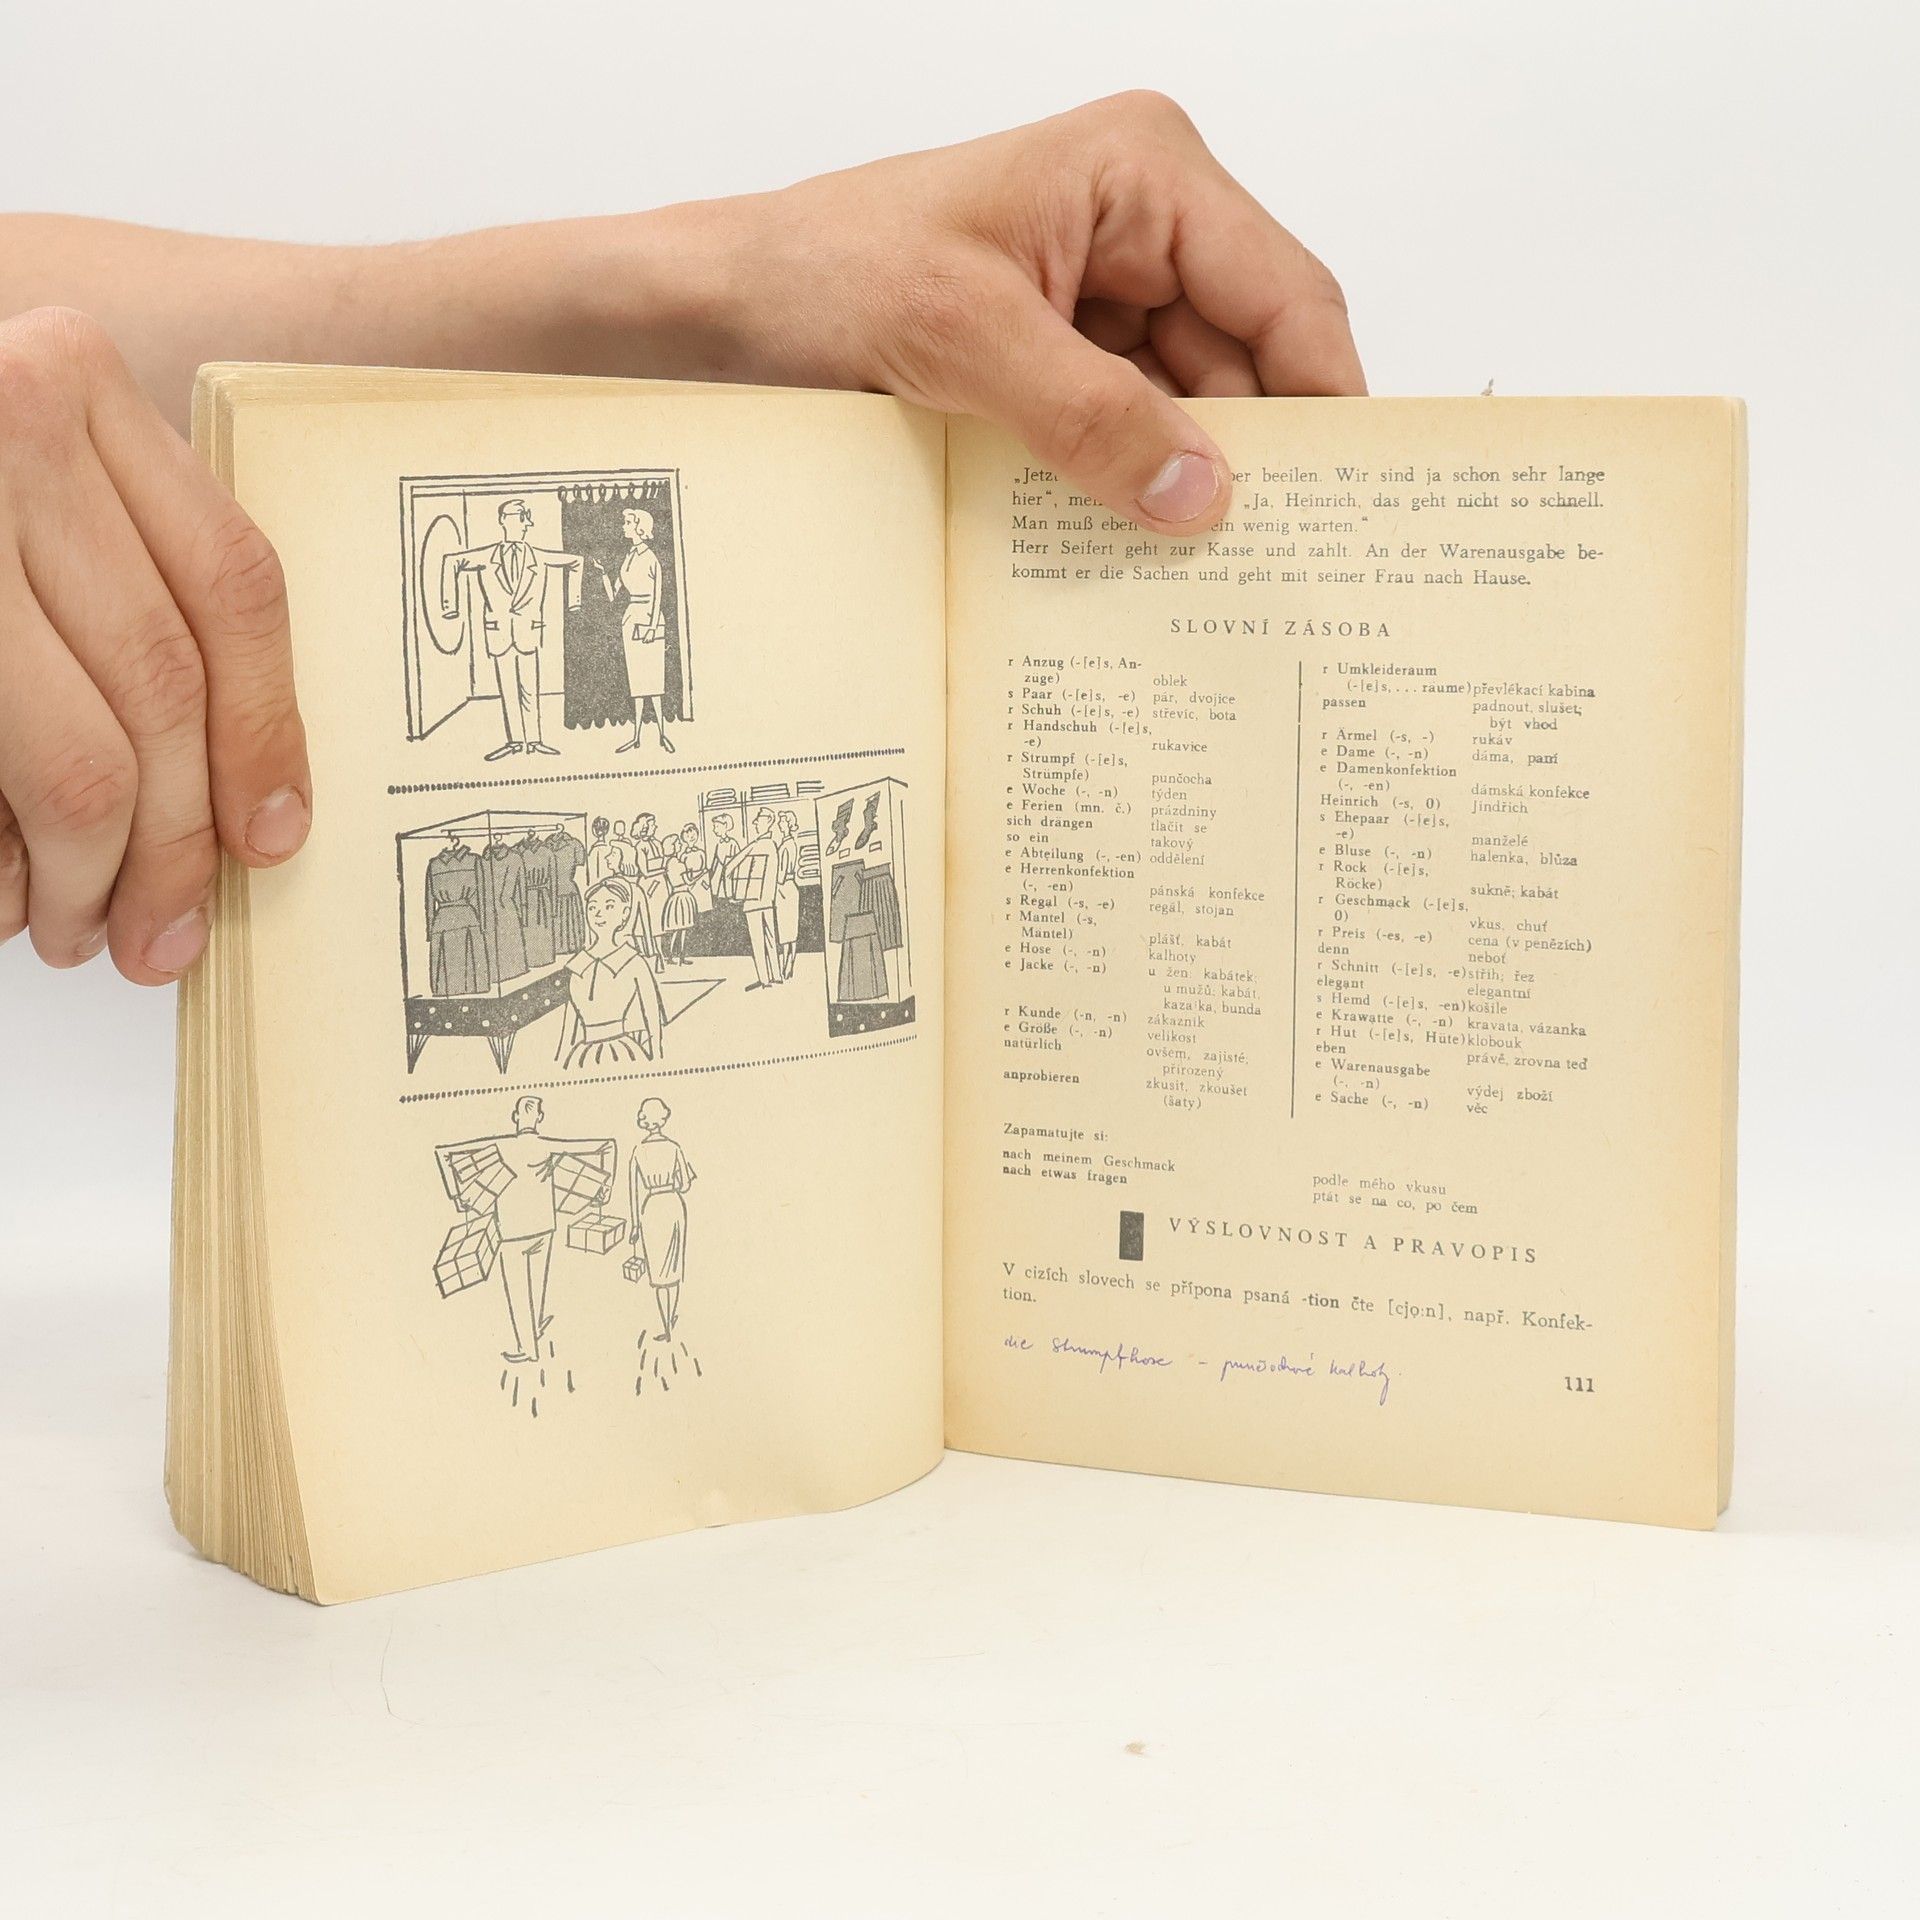 „Jetzt ber beeilen. Wir sind ja schon sehr lange
hier“, „Ja, Heinrich, das geht nicht so schnell.
Man muß eben ein wenig warten.“
Herr Seifert geht zur Kasse und zahlt. An der Warenausgabe be-
kommt er die Sachen und geht mit seiner Frau nach Hause.
SLOVNÍ ZÁSOBA
r Anzug (-[e]s, An-
züge) oblek
s Paar (-[e]s, -e) pár, dvojice
r Schuh (-[e]s, -e) střevíc, bota
r Handschuh (-[e]s,
-e) rukavice
r Strumpf (-[e]s,
Strümpfe) punčocha
e Woche (-, -n) týden
e Ferien (mn. č.) prázdniny
sich drängen tlačit se
so ein takový
e Abteilung (-, -en) oddělení
e Herrenkonfektion
(-, -en) pánská konfekce
s Regal (-s, -e) regál, stojan
r Mantel (-s,
Mäntel) plášť, kabát
e Hose (-, -n) kalhoty
e Jacke (-, -n) u žen: kabátek;
u mužů: kabát,
kazajka, bunda
r Kunde (-n, -n) zákazník
e Größe (-, -n) velikost
natürlich ovšem, zajisté;
přirozený
anprobieren zkusit, zkoušet
(šaty)
r Umkleideraum
(-[e]s, ... räume) převlékací kabina
passen padnout, slušet;
být vhod
r Ärmel (-s, -) rukáv
e Dame (-, -n) dáma, paní
e Damenkonfektion
(-, -en) dámská konfekce
Heinrich (-s, 0) Jindřich
s Ehepaar (-[e]s,
-e) manželé
e Bluse (-, -n) halenka, blůza
r Rock (-[e]s,
Röcke) sukně; kabát
r Geschmack (-[e]s,
0) vkus, chuť
r Preis (-es, -e) cena (v penězích)
denn neboť
r Schnitt (-[e]s, -e) střih; řez
elegant elegantní
s Hemd (-[e]s, -en) košile
e Krawatte (-, -n) kravata, vázanka
r Hut (-[e]s, Hüte) klobouk
eben právě, zrovna teď
e Warenausgabe
(-, -n) výdej zboží
e Sache (-, -n) věc
Zapamatujte si:
nach meinem Geschmack podle mého vkusu
nach etwas fragen ptát se na co, po čem
VÝSLOVNOST A PRAVOPIS
V cizích slovech se přípona psaná -tion čte [cjo:n], např. Konfek-
tion.
die Strumpfhose – punčochové kalhoty.
111